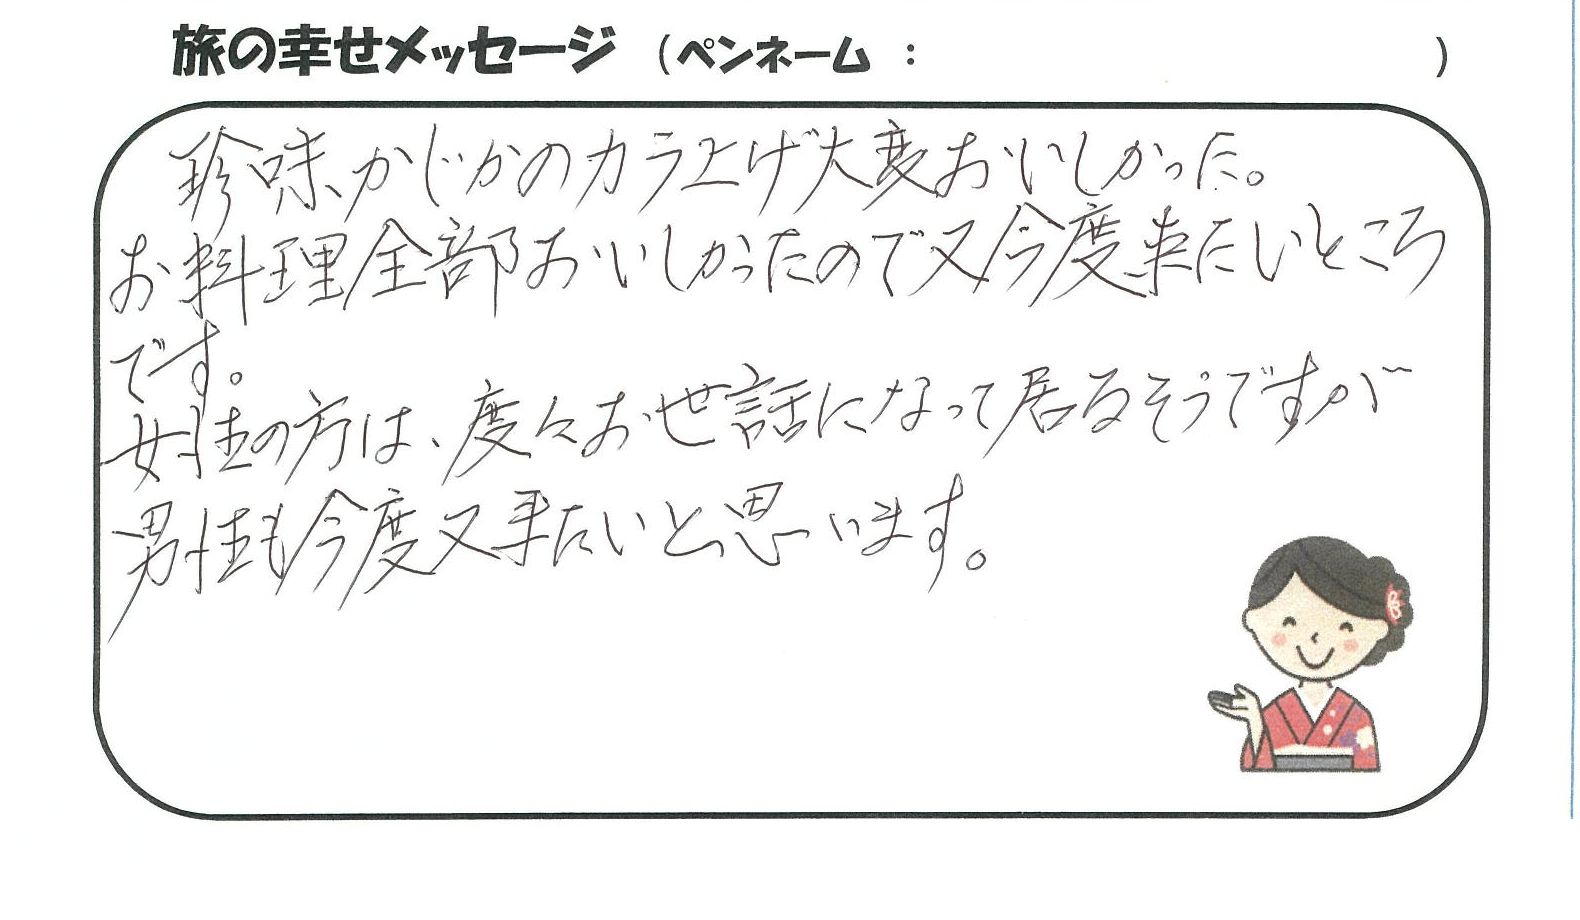 旅の幸せメッセージ (ペンネーム : )
珍味、かじかのカラ上げ大変おいしかった。
お料理全部おいしかったので又今度来たいところ
です。
女性の方は、度々お世話になって居るそうですが
男性も今度又来たいと思います。